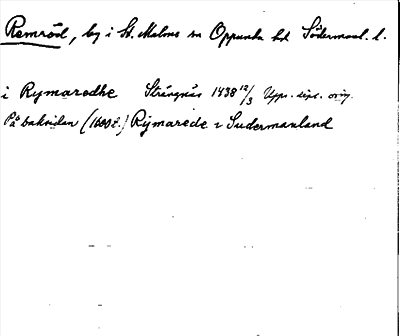 Remröd, by i St. Malms sn Oppunda hd Södermanl. l.
i Rymaredhe Strängnäs 1438 12/3 Upps. dipl. orig.
På baksidan (1600 t.) Rijmarede i Sudermanland